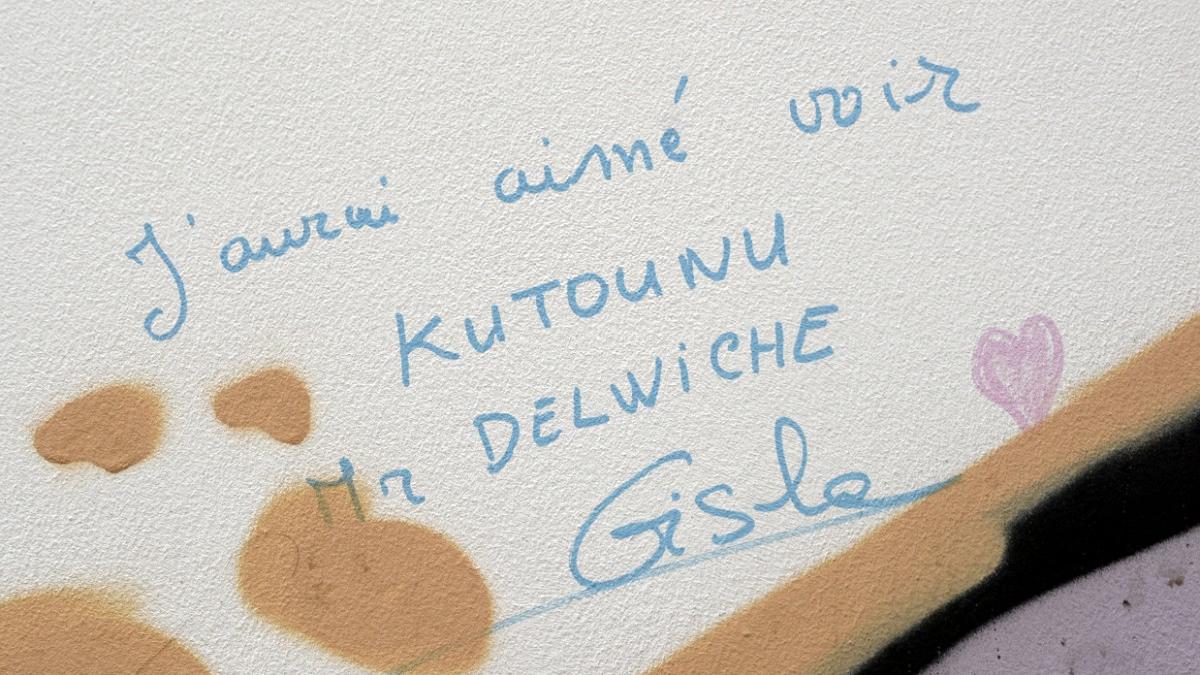 J'aurai aimé voir
KUTOUNU
DELWiCHE
Mr
Gisla